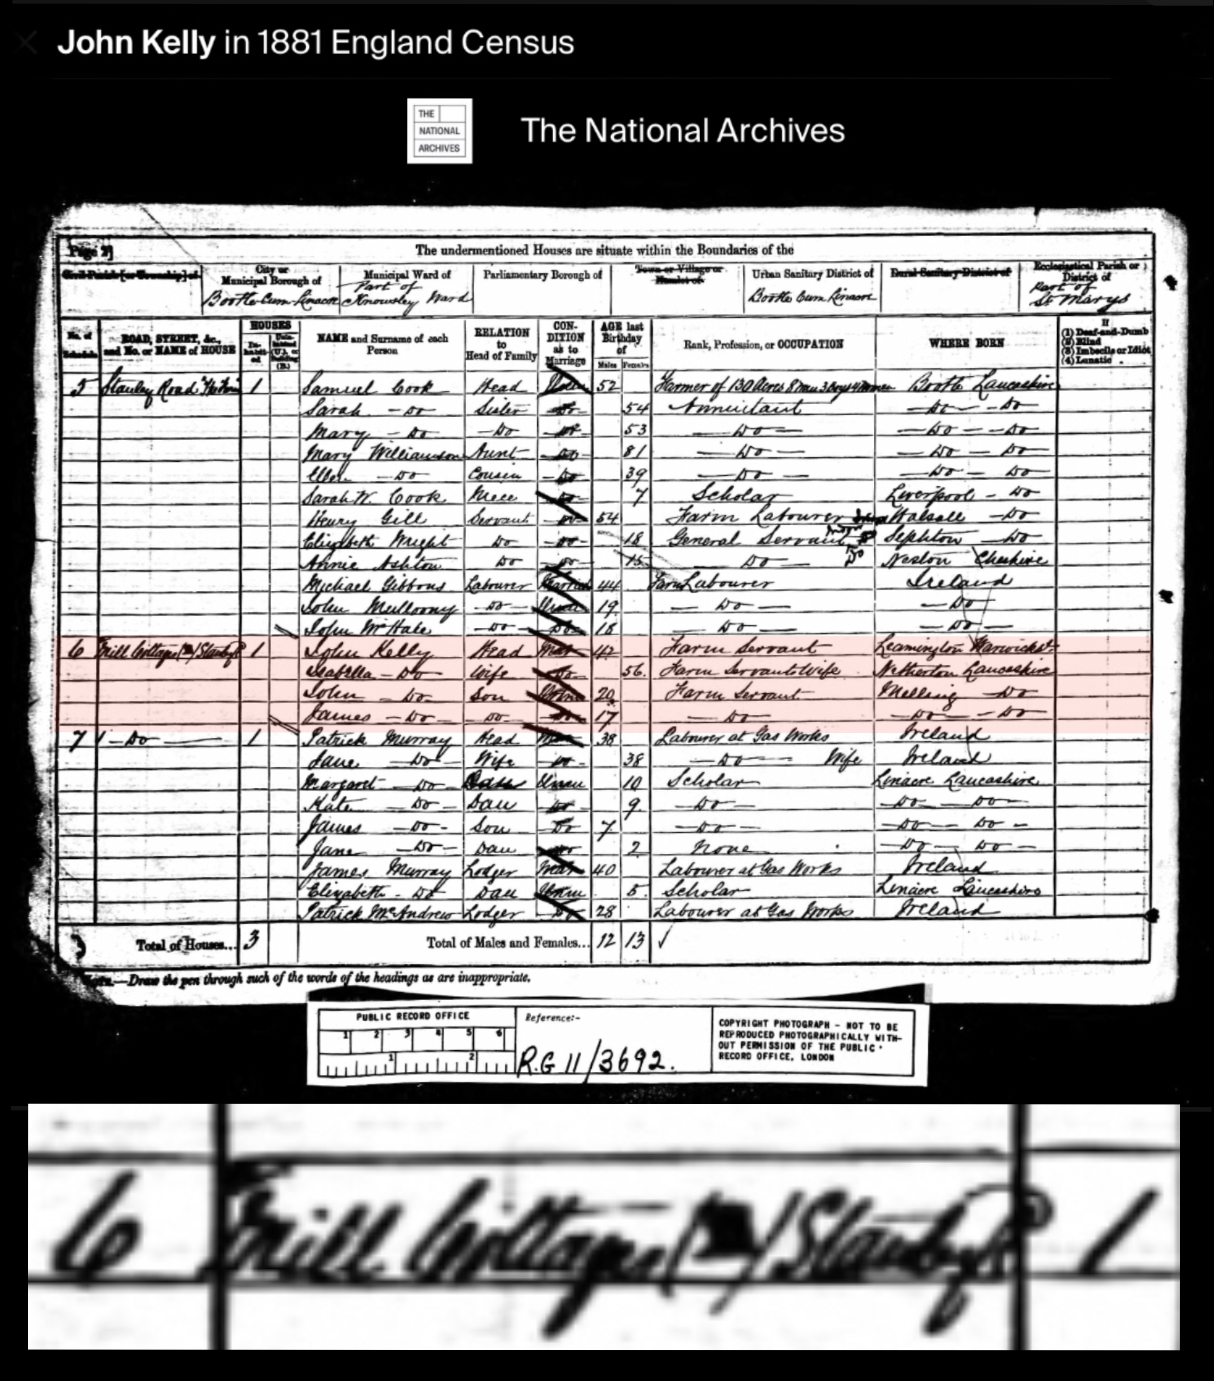 John Kelly in 1881 England Census
THE
NATIONAL
ARCHIVES
The National Archives
Page 7]
The undermentioned Houses are situate within the Boundaries of the
Civil Parish [or Township] of
City or Municipal Borough of
Bootle Cum Linacre
Municipal Ward of
Part of Knowsley Ward
Parliamentary Borough of
Town or Village or Hamlet of
Urban Sanitary District of
Bootle Cum Linacre
Rural Sanitary District of
Ecclesiastical Parish or District of
Part of St Marys
No. of Schedule
ROAD, STREET, &c., and No. or NAME of HOUSE
HOUSES
Inhabited
Uninhabited (U.), or Building (B.)
NAME and Surname of each Person
RELATION to Head of Family
CONDITION as to Marriage
AGE last Birthday of
Males
Females
Rank, Profession, or OCCUPATION
WHERE BORN
If
(1) Deaf-and-Dumb
(2) Blind
(3) Imbecile or Idiot
(4) Lunatic
5 Stanley Road 1 Samuel Cook Head 52 Farmer of 130 Acres 8 men 3 boys Bootle Lancashire
Sarah - Do Sister Do 54 Annuitant Do - Do
Mary - Do Do Do 53 Do Do - Do
Mary Williamson Aunt Do 81 Do Do - Do
Ellen - Do Cousin Do 39 Do Do - Do
Sarah W. Cook Niece Do 7 Scholar Liverpool - Do
Henry Gill Servant Do 54 Farm Labourer Walsall - Do
Elizabeth Wright Do Do 18 General Servant Sephton - Do
Annie Ashton Do Do 15 Do Neston Cheshire
Michael Gibbons Labourer Married 44 Farm Labourer Ireland
John Mulloony Do Unm 19 Do Do
John McHale Do Do 18 Do Do
6 Mill Cottages Stanley R 1 John Kelly Head Mar 42 Farm Servant Leamington Warwicks
Isabella - Do Wife Do 56 Farm Servants Wife Netherton Lancashire
John - Do Son Unm 20 Farm Servant Melling Do
James - Do Do Do 17 Do Do - Do
7 Do 1 Patrick Murray Head Mar 38 Labourer at Gas Works Ireland
Jane Do Wife Do 38 Do Wife Ireland
Margaret - Do Unm 10 Scholar Linacre Lancashire
Kate - Do Dau Do 9 Do Do Do
James - Do Son Do 7 Do Do Do
Jane - Do Dau Do 2 None Do Do
James Murray Lodger Mar 40 Labourer at Gas Works Ireland
Elizabeth - Do Dau Unm 5 Scholar Linacre Lancashire
Patrick McAndrew Lodger Do 28 Labourer at Gas Works Ireland
Total of Houses... 3 Total of Males and Females... 12 13
NOTE.—Draw the pen through such of the words of the headings as are inappropriate.
PUBLIC RECORD OFFICE
1 2 3 4 5 6
1 2
Reference:-
R.G 11/3692.
COPYRIGHT PHOTOGRAPH - NOT TO BE
REPRODUCED PHOTOGRAPHICALLY WITH-
OUT PERMISSION OF THE PUBLIC
RECORD OFFICE, LONDON
6 Mill Cottages Stanley R 1